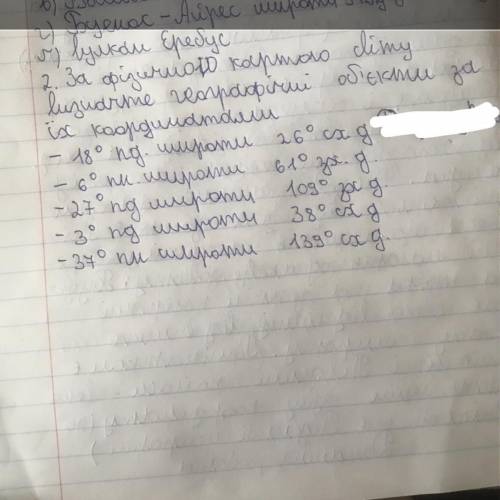 г) Буенос-Айрес широта
г) вулкан Еребус
2. За фізичною картою світу
визначте географічні об'єкти за
їх координатами
- 18° пд. широти 26° сх д
- 6° пн. широти 61° зх. д.
- 27° пд широти 109° зх д
- 3° пд широти 38° сх д
- 37° пн широти 139° сх д.